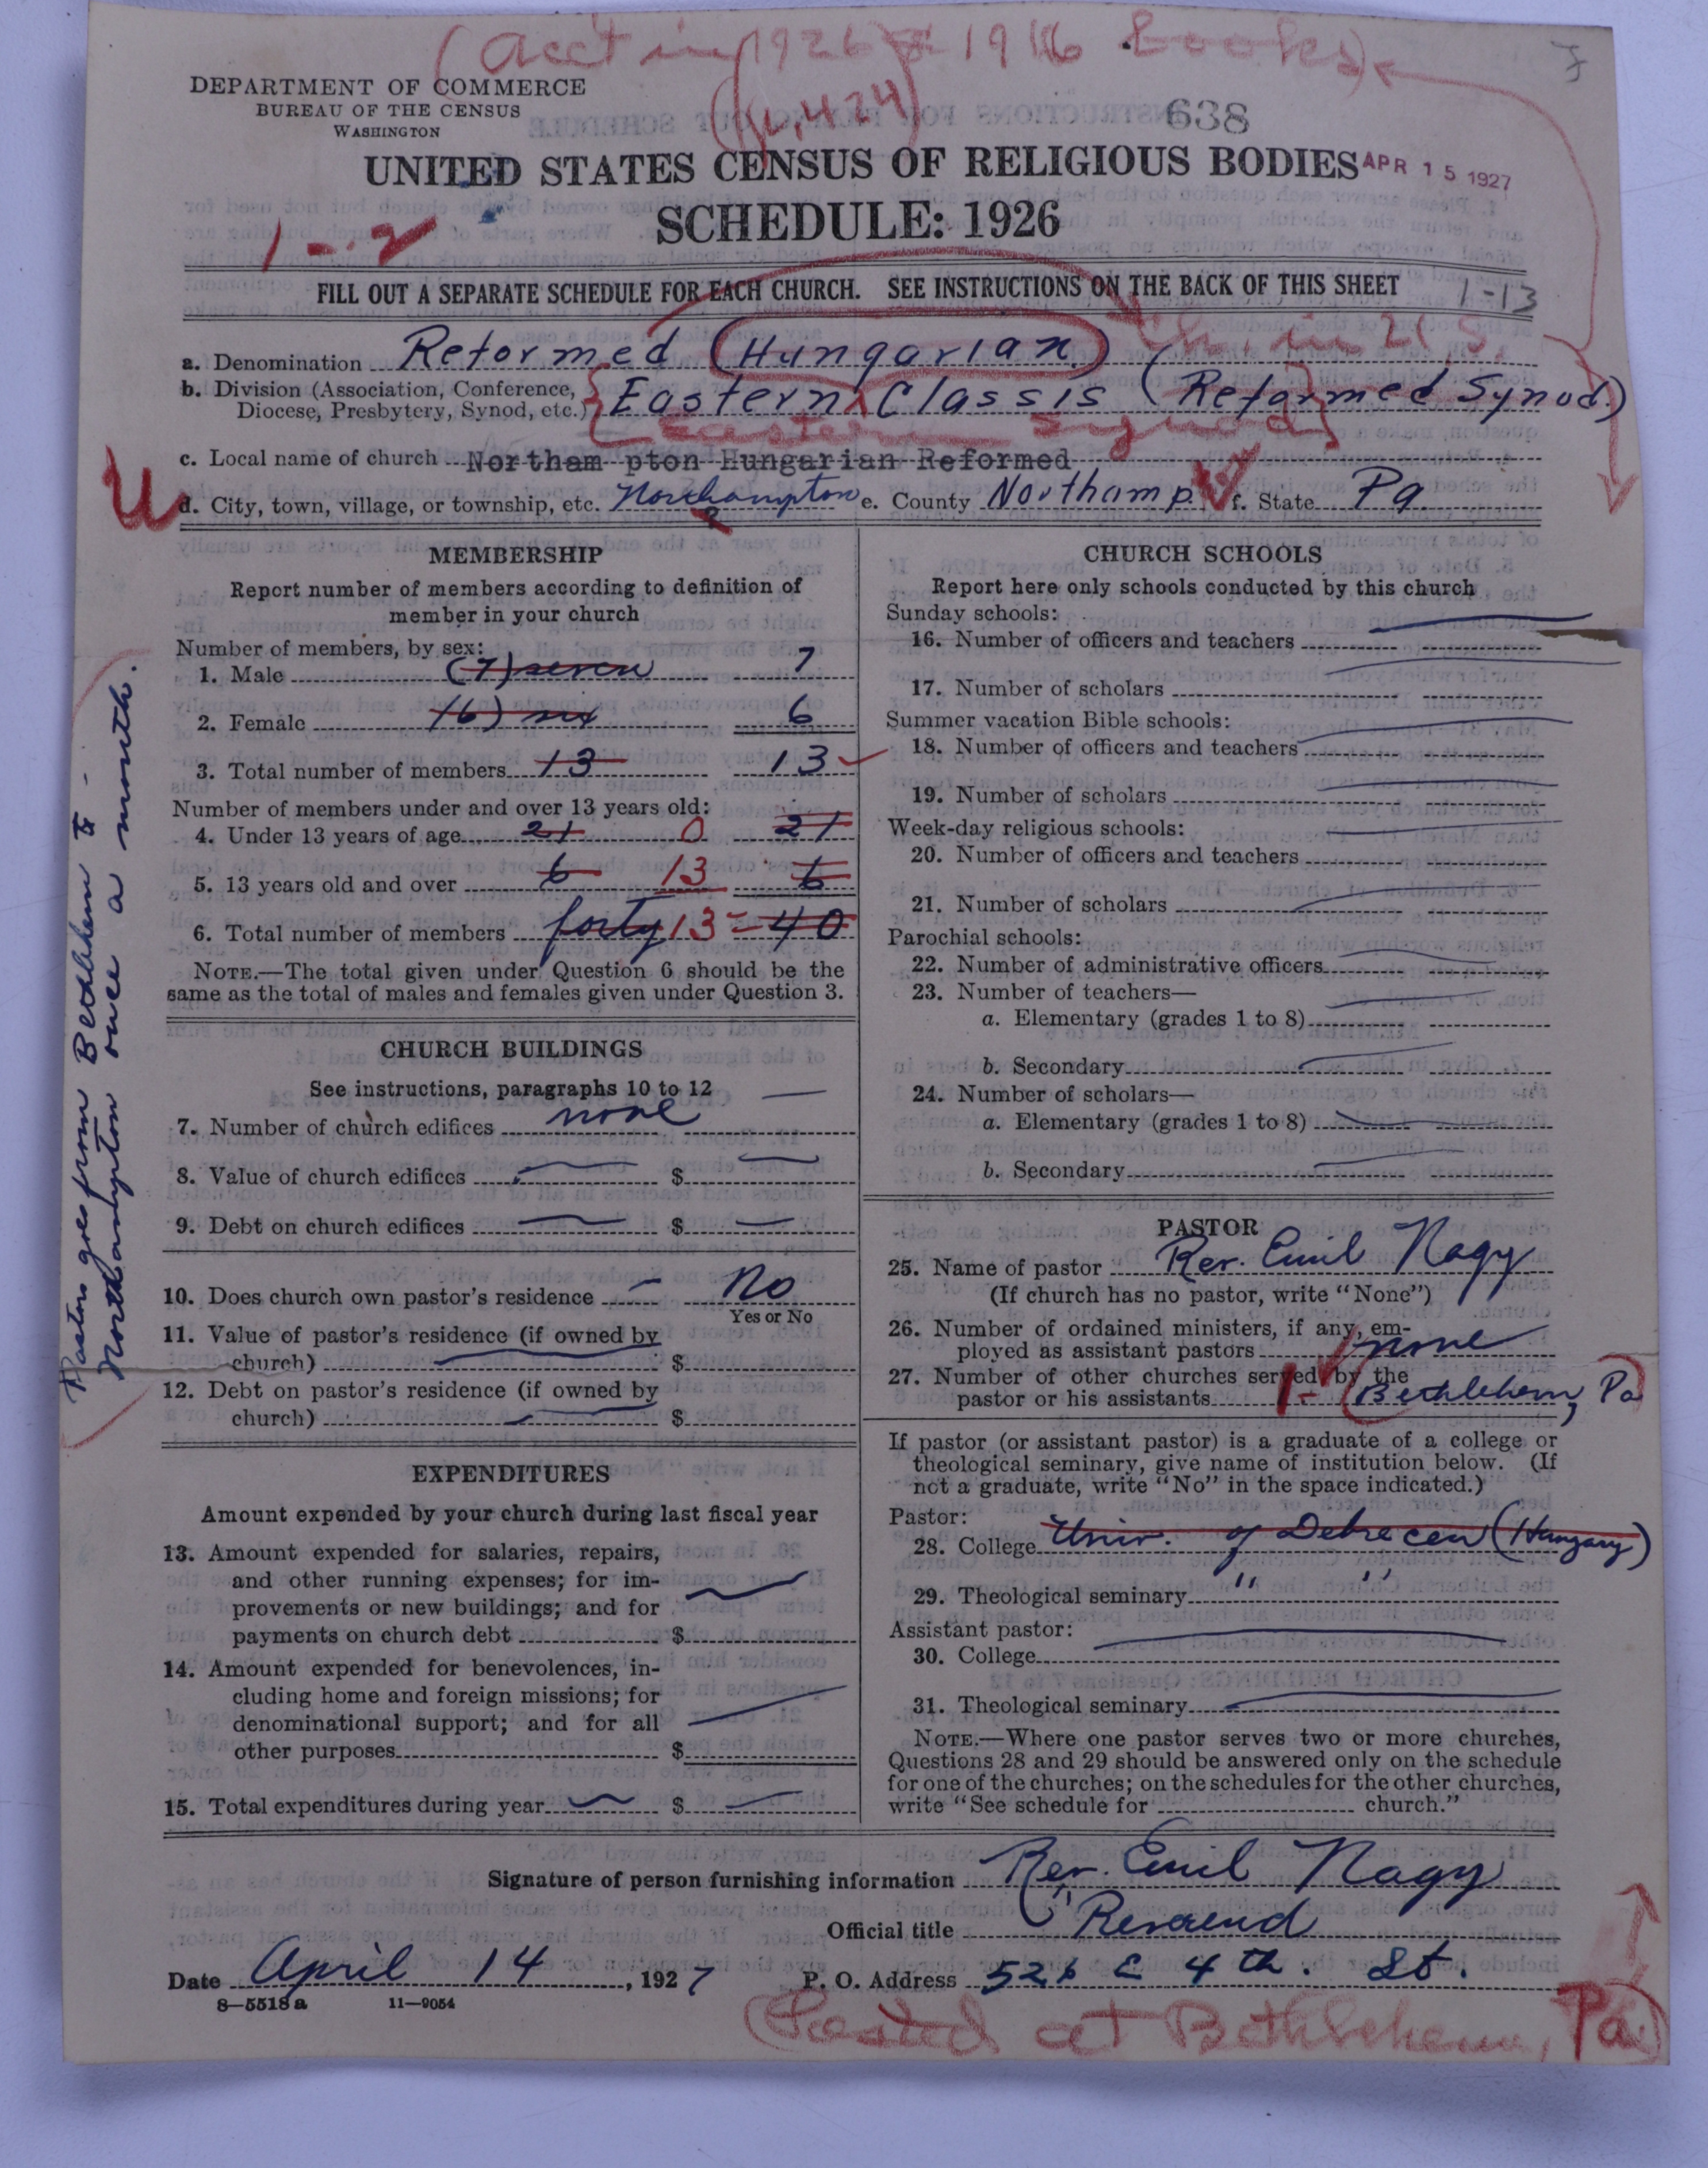 (acct in 1926 & 1916 books)
DEPARTMENT OF COMMERCE
BUREAU OF THE CENSUS
WASHINGTON
638
UNITED STATES CENSUS OF RELIGIOUS BODIES
APR 15 1927
SCHEDULE: 1926
1-2
FILL OUT A SEPARATE SCHEDULE FOR EACH CHURCH. SEE INSTRUCTIONS ON THE BACK OF THIS SHEET
1-13
a. Denomination Reformed (Hungarian)
b. Division (Association, Conference, Diocese, Presbytery, Synod, etc.) Eastern Classis (Reformed Synod.)
Eastern Synod
c. Local name of church Northam pton Hungarian Reformed
d. City, town, village, or township, etc. Northampton e. County Northamp. f. State Pa.
MEMBERSHIP
Report number of members according to definition of
member in your church
Number of members, by sex:
1. Male (7) seven 7
2. Female (6) six 6
3. Total number of members 13 13
Number of members under and over 13 years old:
4. Under 13 years of age 21 0 21
5. 13 years old and over 6 13 6
6. Total number of members forty 13 40
NOTE.—The total given under Question 6 should be the
same as the total of males and females given under Question 3.
CHURCH BUILDINGS
See instructions, paragraphs 10 to 12
7. Number of church edifices none
8. Value of church edifices $
9. Debt on church edifices $
10. Does church own pastor's residence No
Yes or No
11. Value of pastor's residence (if owned by
church) $
12. Debt on pastor's residence (if owned by
church) $
EXPENDITURES
Amount expended by your church during last fiscal year
13. Amount expended for salaries, repairs,
and other running expenses; for im-
provements or new buildings; and for
payments on church debt $
14. Amount expended for benevolences, in-
cluding home and foreign missions; for
denominational support; and for all
other purposes $
15. Total expenditures during year $
Pastor goes from Bethlehem to
Northampton once a month.
CHURCH SCHOOLS
Report here only schools conducted by this church
Sunday schools:
16. Number of officers and teachers
17. Number of scholars
Summer vacation Bible schools:
18. Number of officers and teachers
19. Number of scholars
Week-day religious schools:
20. Number of officers and teachers
21. Number of scholars
Parochial schools:
22. Number of administrative officers
23. Number of teachers—
a. Elementary (grades 1 to 8)
b. Secondary
24. Number of scholars—
a. Elementary (grades 1 to 8)
b. Secondary
PASTOR
25. Name of pastor Rev. Emil Nagy
(If church has no pastor, write "None")
26. Number of ordained ministers, if any, em-
ployed as assistant pastors none
27. Number of other churches served by the
pastor or his assistants 1- (Bethlehem, Pa)
If pastor (or assistant pastor) is a graduate of a college or
theological seminary, give name of institution below. (If
not a graduate, write "No" in the space indicated.)
Pastor:
28. College Univ. of Debrecen (Hungary)
29. Theological seminary " "
Assistant pastor:
30. College
31. Theological seminary
NOTE.—Where one pastor serves two or more churches,
Questions 28 and 29 should be answered only on the schedule
for one of the churches; on the schedules for the other churches,
write "See schedule for church."
Signature of person furnishing information Rev. Emil Nagy
Official title Reverend
Date April 14, 1927 P. O. Address 526 E 4th. St.
8-5518a 11-9054
(Located at Bethlehem, Pa.)